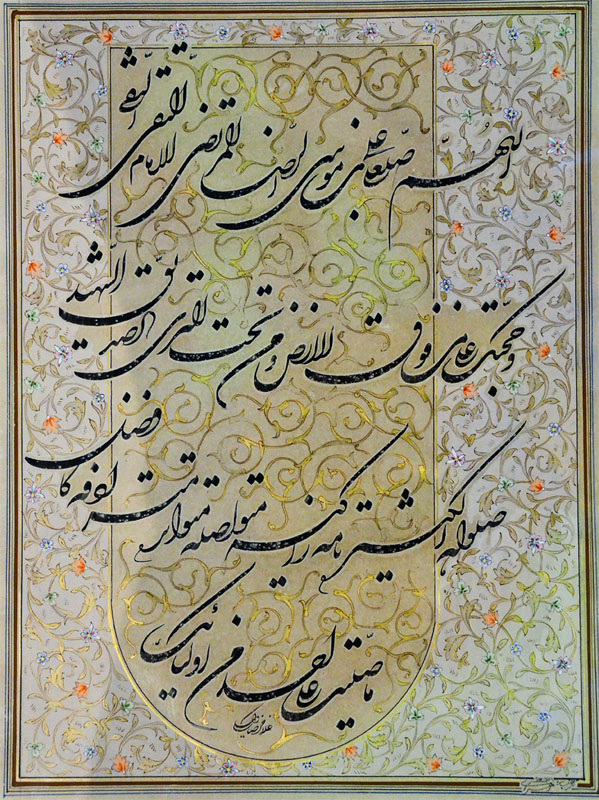 اللهم صلّ علی علی بن موسی الرضا المرتضی الامام التقی النقی
و حجتک علی من فوق الارض و من تحت الثری الصدیق الشهید
صلواة کثیرة تامه زاکیه متواصله متواتره مترادفه کافضل
ما صلّیت علی احد من اولیائک